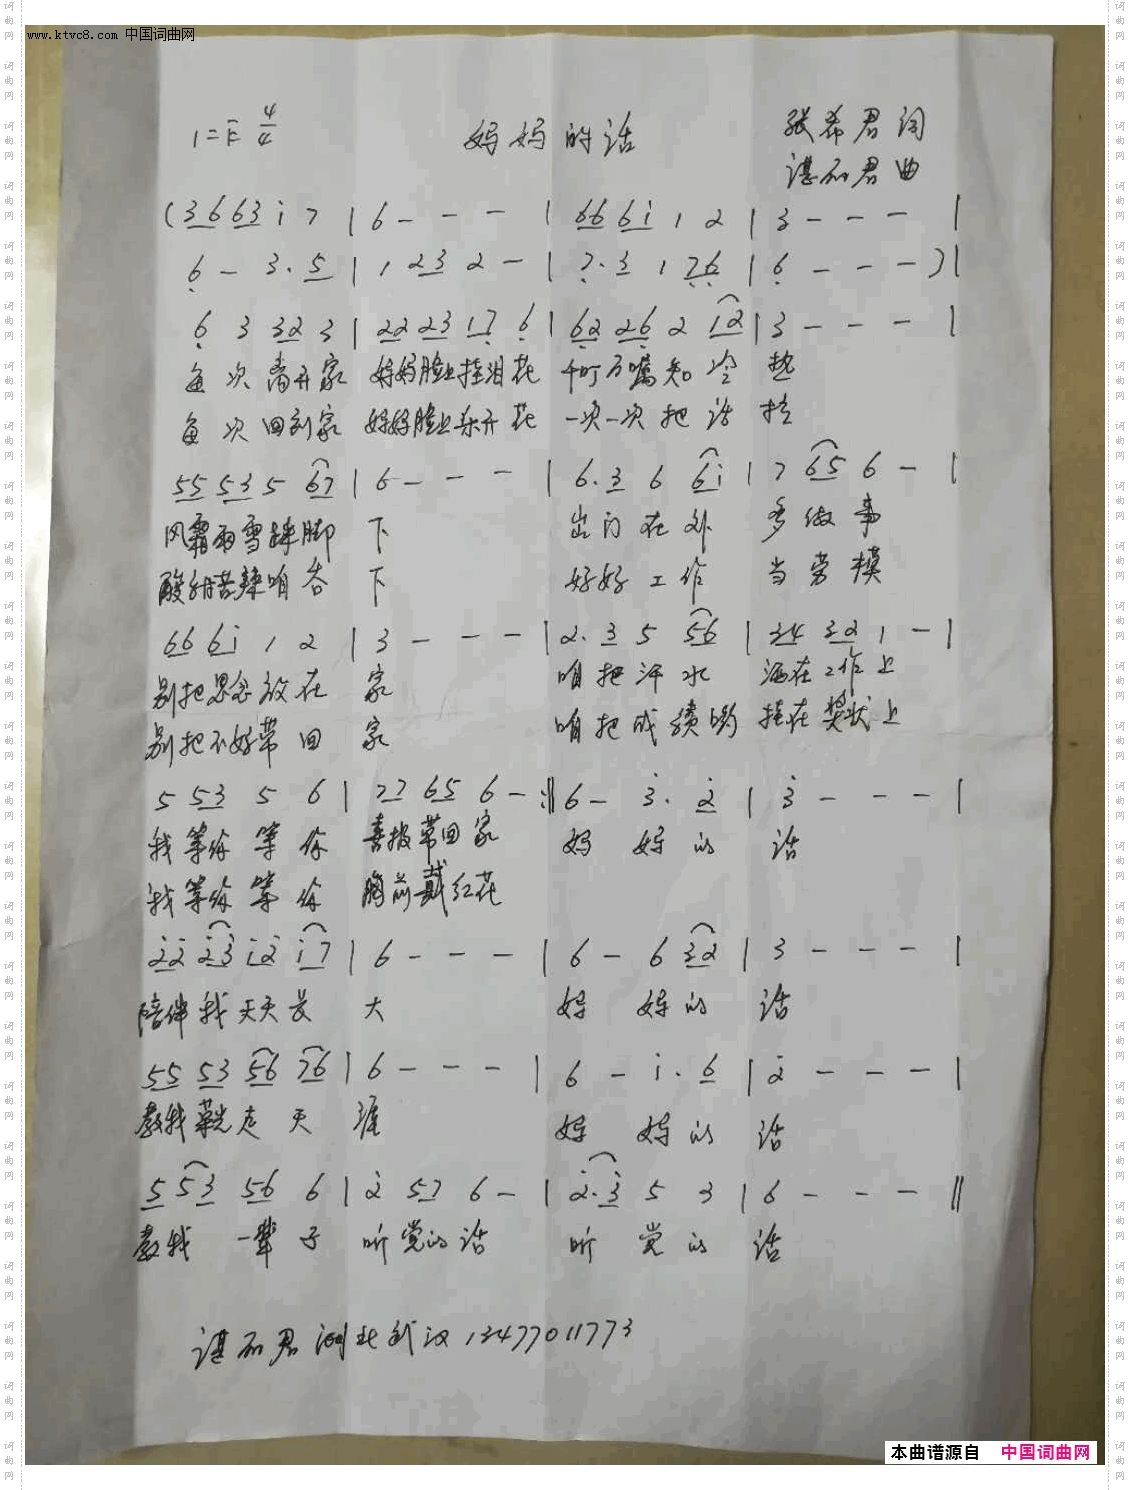 www.ktvc8.com 中国词曲网
1=F 4/4 妈妈的话 张希君词
谌石君曲
(3 6 6 3 i 7 | 6 - - - | 6 6 6 i 1 2 | 3 - - - |
6 - 3 . 5 | 1 2 3 2 - | 7 . 3 1 7 6 | 6 - - - ) |
6 3 3 2 3 | 2 2 2 3 1 7 6 | 6 2 2 6 2 1 2 | 3 - - - |
每次离开家 妈妈脸上挂泪花 千叮万嘱知冷热
每次回到家 妈妈脸上乐开花 一次一次把话拉
5 5 5 3 5 6 7 | 6 - - - | 6 . 3 6 6 i | 7 6 5 6 - |
风霜雨雪踩脚下 出门在外 多做事
酸甜苦辣咱吞下 好好工作 当劳模
6 6 6 i 1 2 | 3 - - - | 2 . 3 5 5 6 | 3 4 3 2 1 - |
别把思念放在家 咱把汗水 洒在工作上
别把不好带回家 咱把成绩哟 挂在奖状上
5 5 3 5 6 | 7 7 6 5 6 - :‖ 6 - 3 . 2 | 3 - - - |
我等你等你 喜报带回家 妈妈的话
我等你等你 胸前戴红花
2 2 2 3 i 2 i 7 | 6 - - - | 6 - 6 3 2 | 3 - - - |
陪伴我天天长大 妈妈的话
5 5 5 3 5 6 7 6 | 6 - - - | 6 - i . 6 | 2 - - - |
教我走天涯 妈妈的话
5 5 3 5 6 6 | 2 5 7 6 - | 2 . 3 5 3 | 6 - - - ‖
教我一辈子 听党的话 听党的话
谌石君 湖北武汉 13477011773
本曲谱源自 中国词曲网